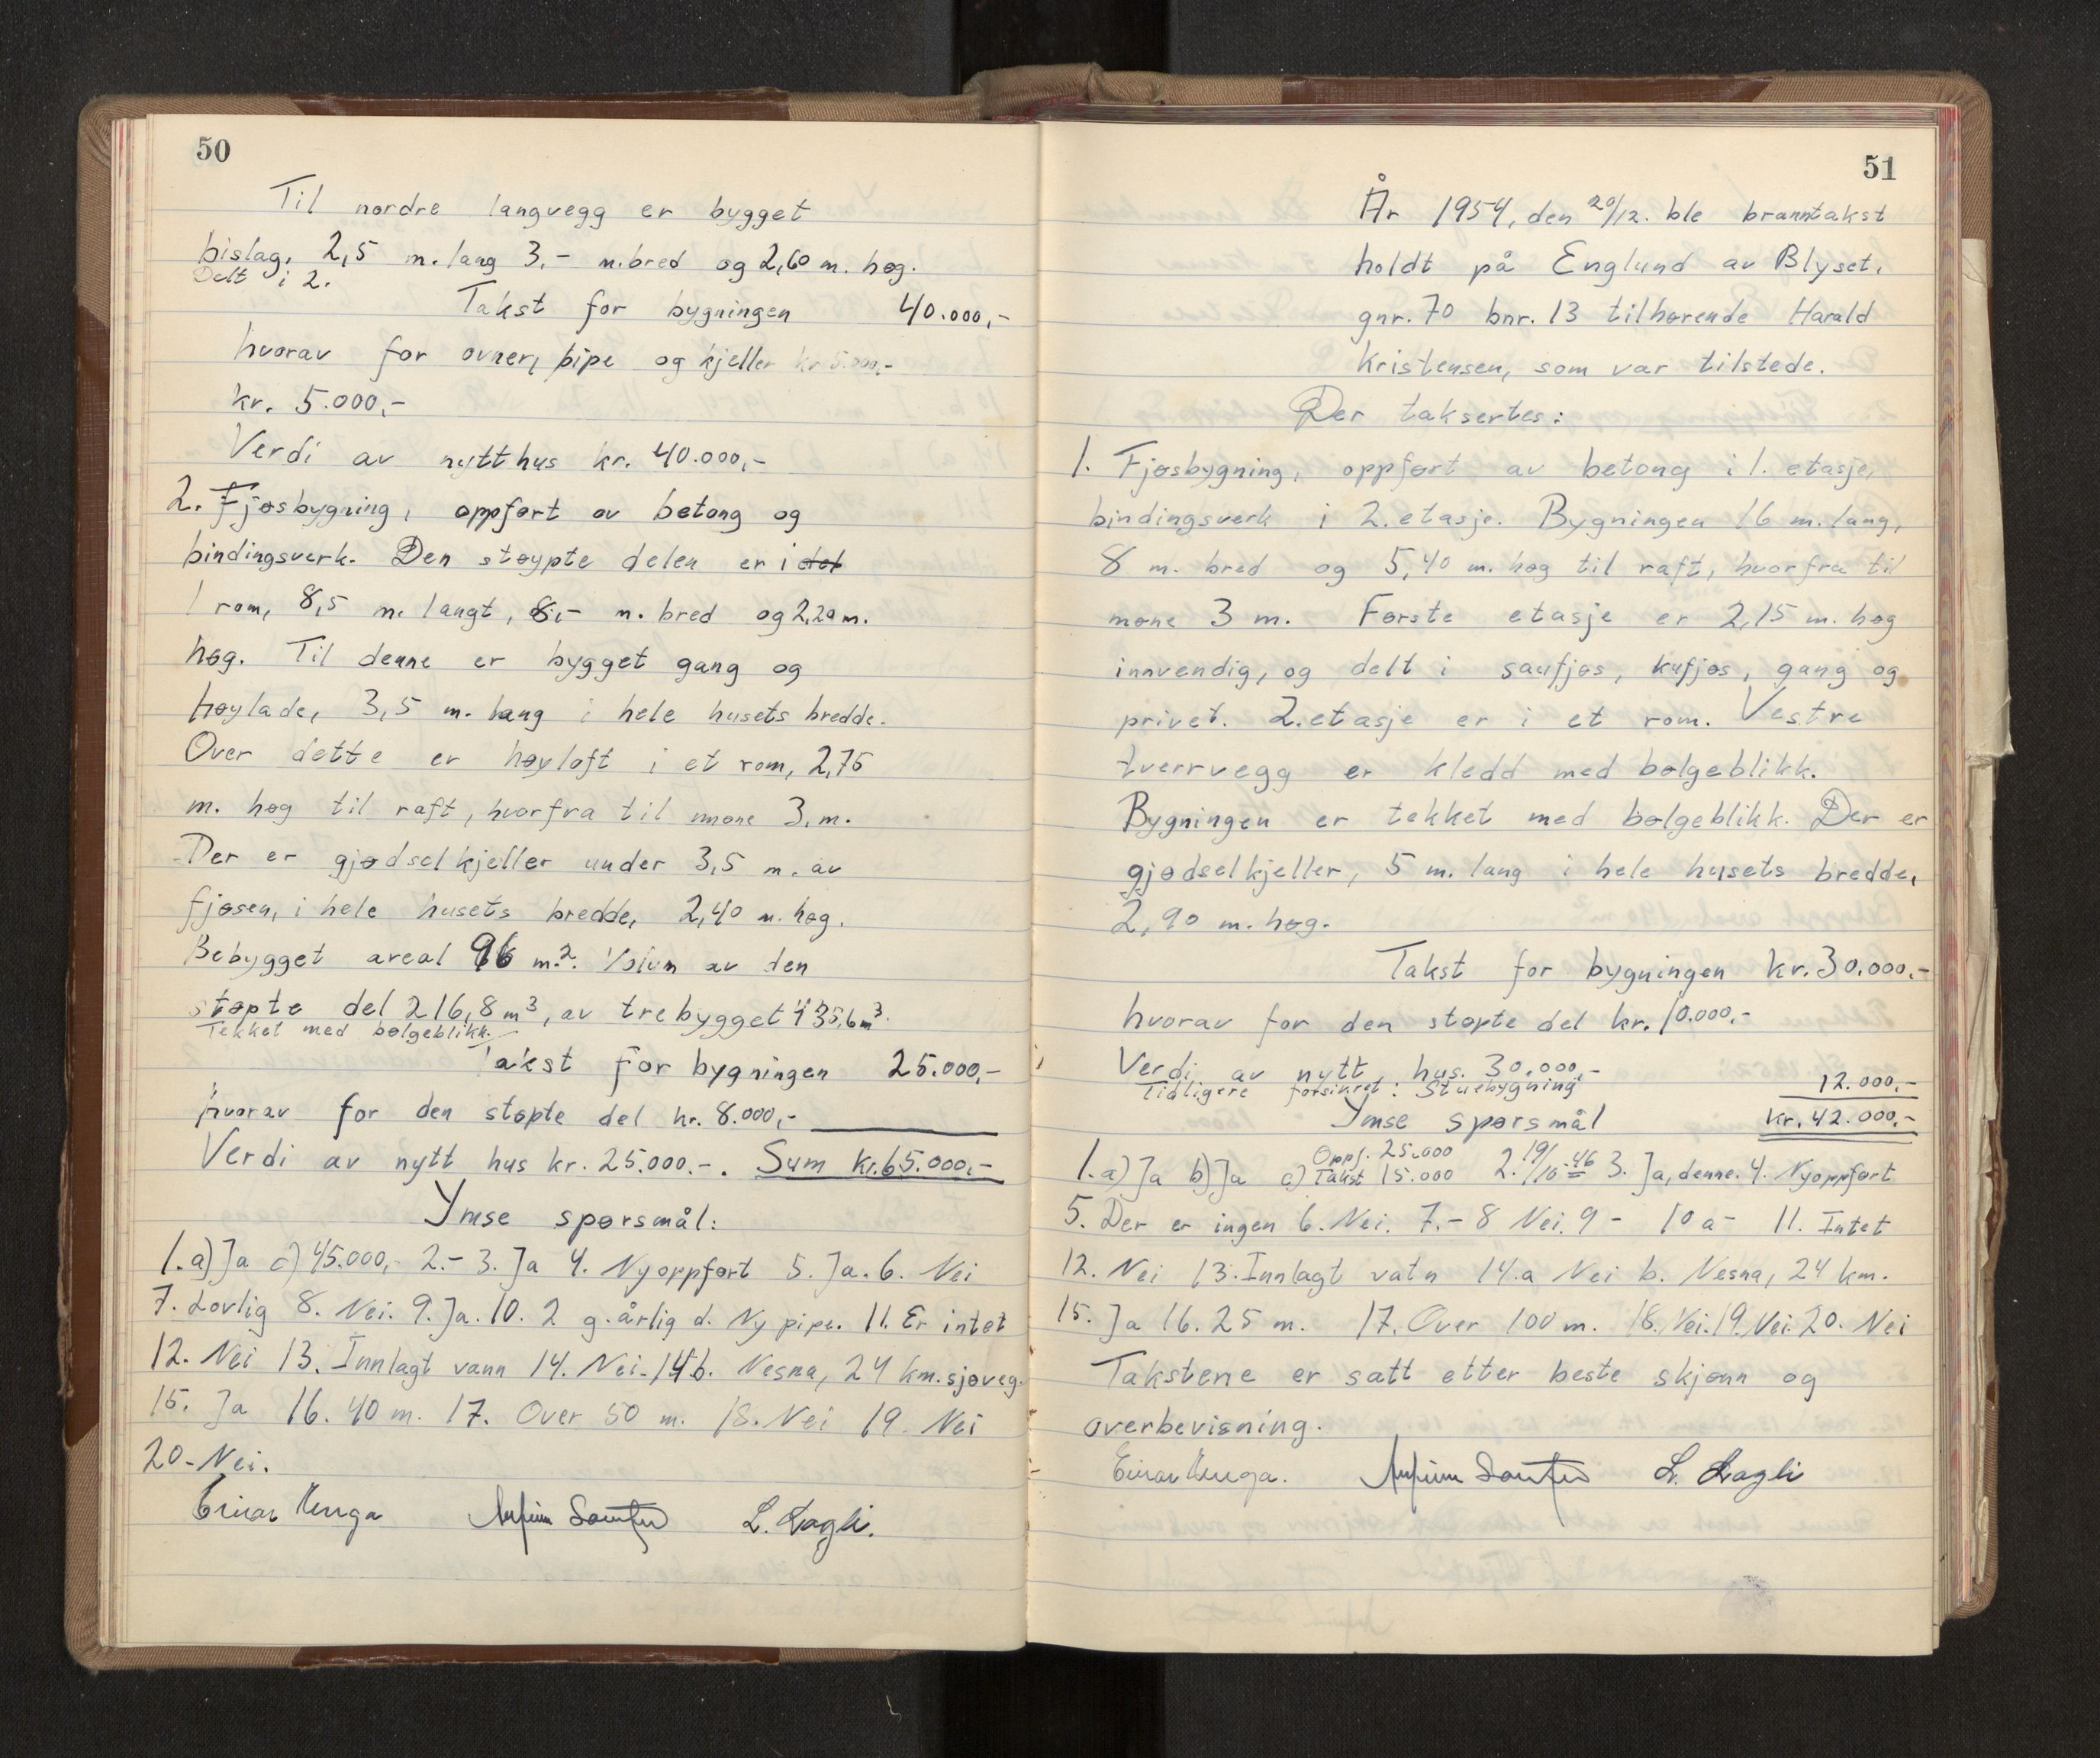 50
Til nordre langvegg er bygget
bislag, 2,5 m. lang 3,- m. bred og 2,60 m. høg.
Delt i 2.
Takst for bygningen 40.000,-
hvorav for ovner, pipe og kjeller kr 5.000,-
kr. 5.000,-
Verdi av nytt hus kr. 40.000,-
2. Fjøsbygning, oppført av betong og
bindingsverk. Den støypte delen er i det
1 rom, 8,5 m. langt, 8,- m. bred og 2,20 m.
høg. Til denne er bygget gang og
høylade, 3,5 m. lang i hele husets bredde.
Over dette er høyloft i et rom, 2,75
m. høg til raft, hvorfra til møne 3. m.
Der er gjødselkjeller under 3,5 m. av
fjøsen, i hele husets bredde, 2,40 m. høg.
Bebygget areal 96 m.². Volum av den
støpte del 216,8 m³, av trebygget 435,6 m³.
Tekket med bølgeblikk.
Takst for bygningen 25.000,-
hvorav for den støpte del kr. 8.000,-
Verdi av nytt hus kr. 25.000.-. Sum kr. 65.000,-
Ymse spørsmål:
1. a) Ja c) 45.000,- 2.- 3. Ja 4. Nyoppført 5. Ja. 6. Nei
7. Lovlig 8. Nei. 9. Ja. 10. 2 g. årlig d. Ny pipe. 11. Er intet
12. Nei 13. Innlagt vann 14. Nei. 14b. Nesna, 24 km. sjøveg.
15. Ja 16. 40 m. 17. Over 50 m. 18. Nei 19. Nei
20. Nei.
Einar L. Hagli.
51
År 1954, den 20/12. ble branntakst
holdt på Englund av Blyset,
gnr. 70 bnr. 13 tilhørende Harald
Kristensen, som var tilstede.
Der taksertes:
1. Fjøsbygning, oppført av betong i 1. etasje,
bindingsverk i 2. etasje. Bygningen 16 m. lang,
8 m. bred og 5,40 m. høg til raft, hvorfra til
møne 3 m. Første etasje er 2,15 m. høg
innvendig, og delt i saufjøs, kufjøs, gang og
privet. 2. etasje er i et rom. Vestre
tverrvegg er kledd med bølgeblikk.
Bygningen er tekket med bølgeblikk. Der er
gjødselkjeller, 5 m. lang i hele husets bredde,
2,90 m. høg.
Takst for bygningen kr. 30.000.-
hvorav for den støpte del kr. 10.000.-
Verdi av nytt hus. 30.000,-
Tidligere forsikret: Stuebygning 12.000,-
Ymse spørsmål kr. 42.000,-
1. a) Ja b) Ja c) Oppf. 25.000 Takst 15.000 2. 19/10-46 3. Ja, denne. 4. Nyoppført
5. Der er ingen 6. Nei. 7.- 8 Nei. 9 - 10 a - 11. Intet
12. Nei 13. Innlagt vatn 14. a Nei b. Nesna, 24 km.
15. Ja 16. 25 m. 17. Over 100 m. 18. Nei. 19. Nei. 20. Nei
Takstene er satt etter beste skjønn og
overbevisning.
Einar L. Hagli